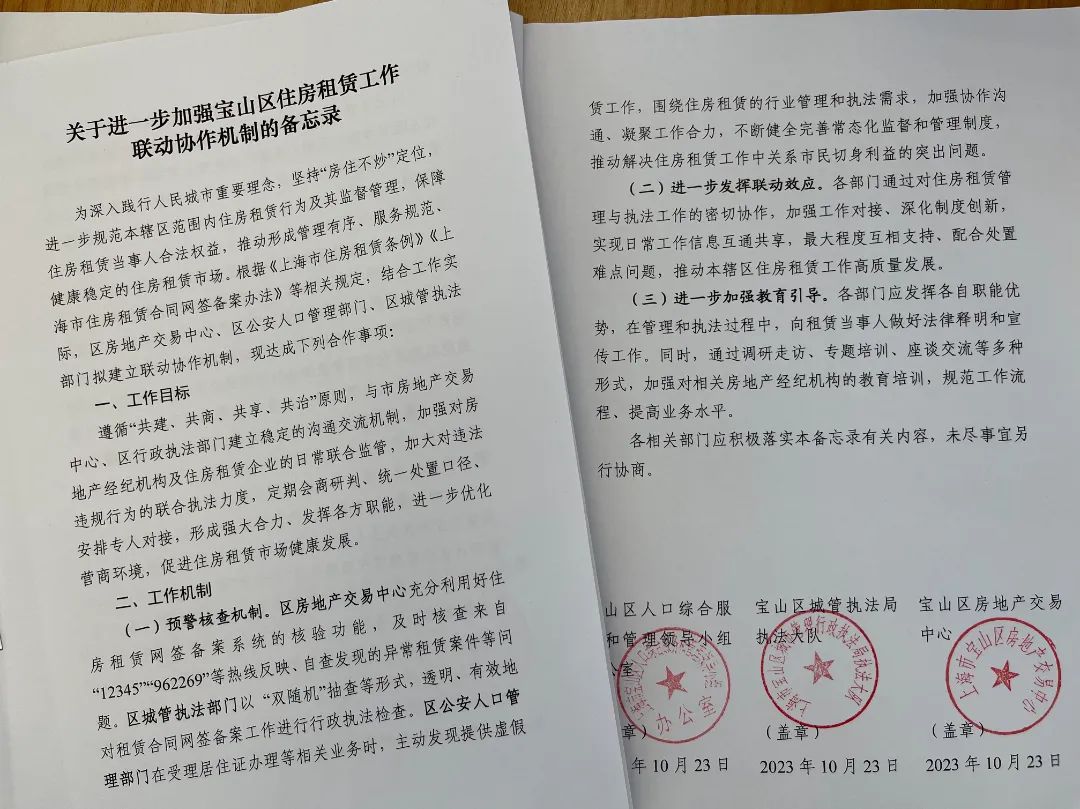 关于进一步加强宝山区住房租赁工作
联动协作机制的备忘录
为深入践行人民城市重要理念，坚持“房住不炒”定位，
进一步规范本辖区范围内住房租赁行为及其监督管理，保障
住房租赁当事人合法权益，推动形成管理有序、服务规范、
健康稳定的住房租赁市场。根据《上海市住房租赁条例》《上
海市住房租赁合同网签备案办法》等相关规定，结合工作实
际，区房地产交易中心、区公安人口管理部门、区城管执法
部门拟建立联动协作机制，现达成下列合作事项：
一、工作目标
遵循“共建、共商、共享、共治”原则，与市房地产交易
中心、区行政执法部门建立稳定的沟通交流机制，加强对房
地产经纪机构及住房租赁企业的日常联合监管，加大对违法
违规行为的联合执法力度，定期会商研判、统一处置口径、
安排专人对接，形成强大合力、发挥各方职能，进一步优化
营商环境，促进住房租赁市场健康发展。
二、工作机制
（一）预警核查机制。区房地产交易中心充分利用好住
房租赁网签备案系统的核验功能，及时核查来自
“12345”“962269”等热线反映、自查发现的异常租赁案件等问
题。区城管执法部门以“双随机”抽查等形式，透明、有效地
对租赁合同网签备案工作进行行政执法检查。区公安人口管
理部门在受理居住证办理等相关业务时，主动发现提供虚假
赁工作，围绕住房租赁的行业管理和执法需求，加强协作沟
通、凝聚工作合力，不断健全完善常态化监督和管理制度，
推动解决住房租赁工作中关系市民切身利益的突出问题。
（二）进一步发挥联动效应。各部门通过对住房租赁管
理与执法工作的密切协作，加强工作对接、深化制度创新，
实现日常工作信息互通共享，最大程度互相支持、配合处置
难点问题，推动本辖区住房租赁工作高质量发展。
（三）进一步加强教育引导。各部门应发挥各自职能优
势，在管理和执法过程中，向租赁当事人做好法律释明和宣
传工作。同时，通过调研走访、专题培训、座谈交流等多种
形式，加强对相关房地产经纪机构的教育培训，规范工作流
程、提高业务水平。
各相关部门应积极落实本备忘录有关内容，未尽事宜另
行协商。
山区人口综合服
和管理领导小组
公室
办公室
章）
年 10 月 23 日
宝山区城管执法局
执法大队
上海市宝山区城市管理行政执法局执法大队
（盖章）
2023 年 10 月 23 日
宝山区房地产交易
中心
上海市宝山区房地产交易中心
（盖章）
2023 年 10 月 23 日